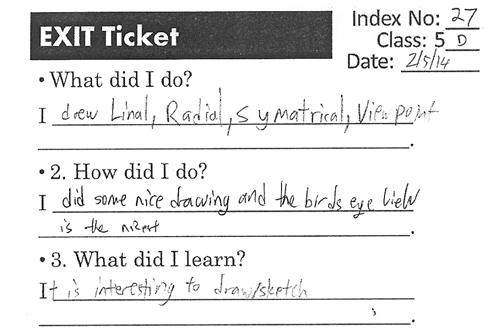 EXIT Ticket
Index No: 27
Class: 5 D
Date: 2/5/14
• What did I do?
I drew Linal, Radial, Symatrical, View point
.
• 2. How did I do?
I did some nice drawing and the birds eye View
is the nizest .
• 3. What did I learn?
It is interesting to draw/sketch
.